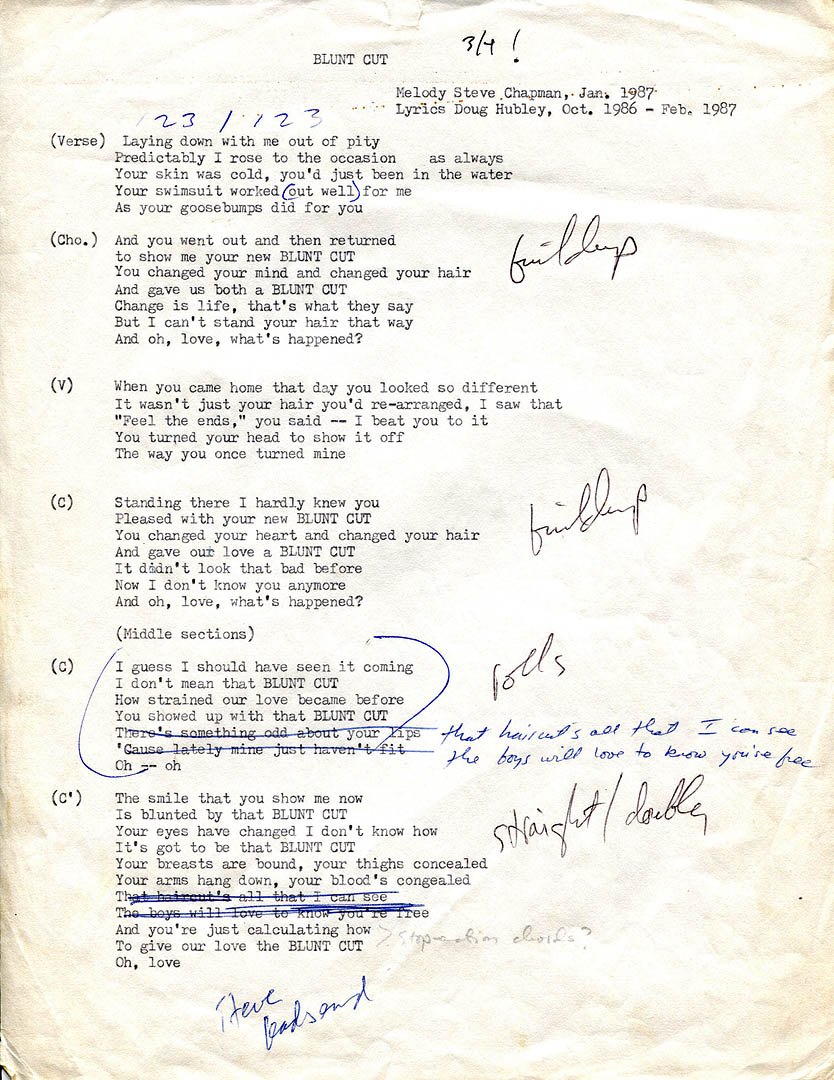 3/4 !
BLUNT CUT
Melody Steve Chapman, Jan. 1987
Lyrics Doug Hubley, Oct. 1986 - Feb. 1987
123 / 123
(Verse) Laying down with me out of pity
Predictably I rose to the occasion as always
Your skin was cold, you'd just been in the water
Your swimsuit worked out well for me
As your goosebumps did for you
(Cho.) And you went out and then returned
to show me your new BLUNT CUT
buildup
You changed your mind and changed your hair
And gave us both a BLUNT CUT
Change is life, that's what they say
But I can't stand your hair that way
And oh, love, what's happened?
(V) When you came home that day you looked so different
It wasn't just your hair you'd re-arranged, I saw that
"Feel the ends," you said -- I beat you to it
You turned your head to show it off
The way you once turned mine
(C) Standing there I hardly knew you
Pleased with your new BLUNT CUT
buildup
You changed your heart and changed your hair
And gave our love a BLUNT CUT
It didn't look that bad before
Now I don't know you anymore
And oh, love, what's happened?
(Middle sections)
(C) I guess I should have seen it coming
rolls
I don't mean that BLUNT CUT
How strained our love became before
You showed up with that BLUNT CUT
There's something odd about your lips
that haircut's all that I can see
'Cause lately mine just haven't fit
the boys will love to know you're free
Oh -- oh
(C') The smile that you show me now
Is blunted by that BLUNT CUT
straight / double
Your eyes have changed I don't know how
It's got to be that BLUNT CUT
Your breasts are bound, your thighs concealed
Your arms hang down, your blood's congealed
That haircut's all that I can see
The boys will love to know you're free
And you're just calculating how
> stop-action chords?
To give our love the BLUNT CUT
Oh, love
Steve
leads end